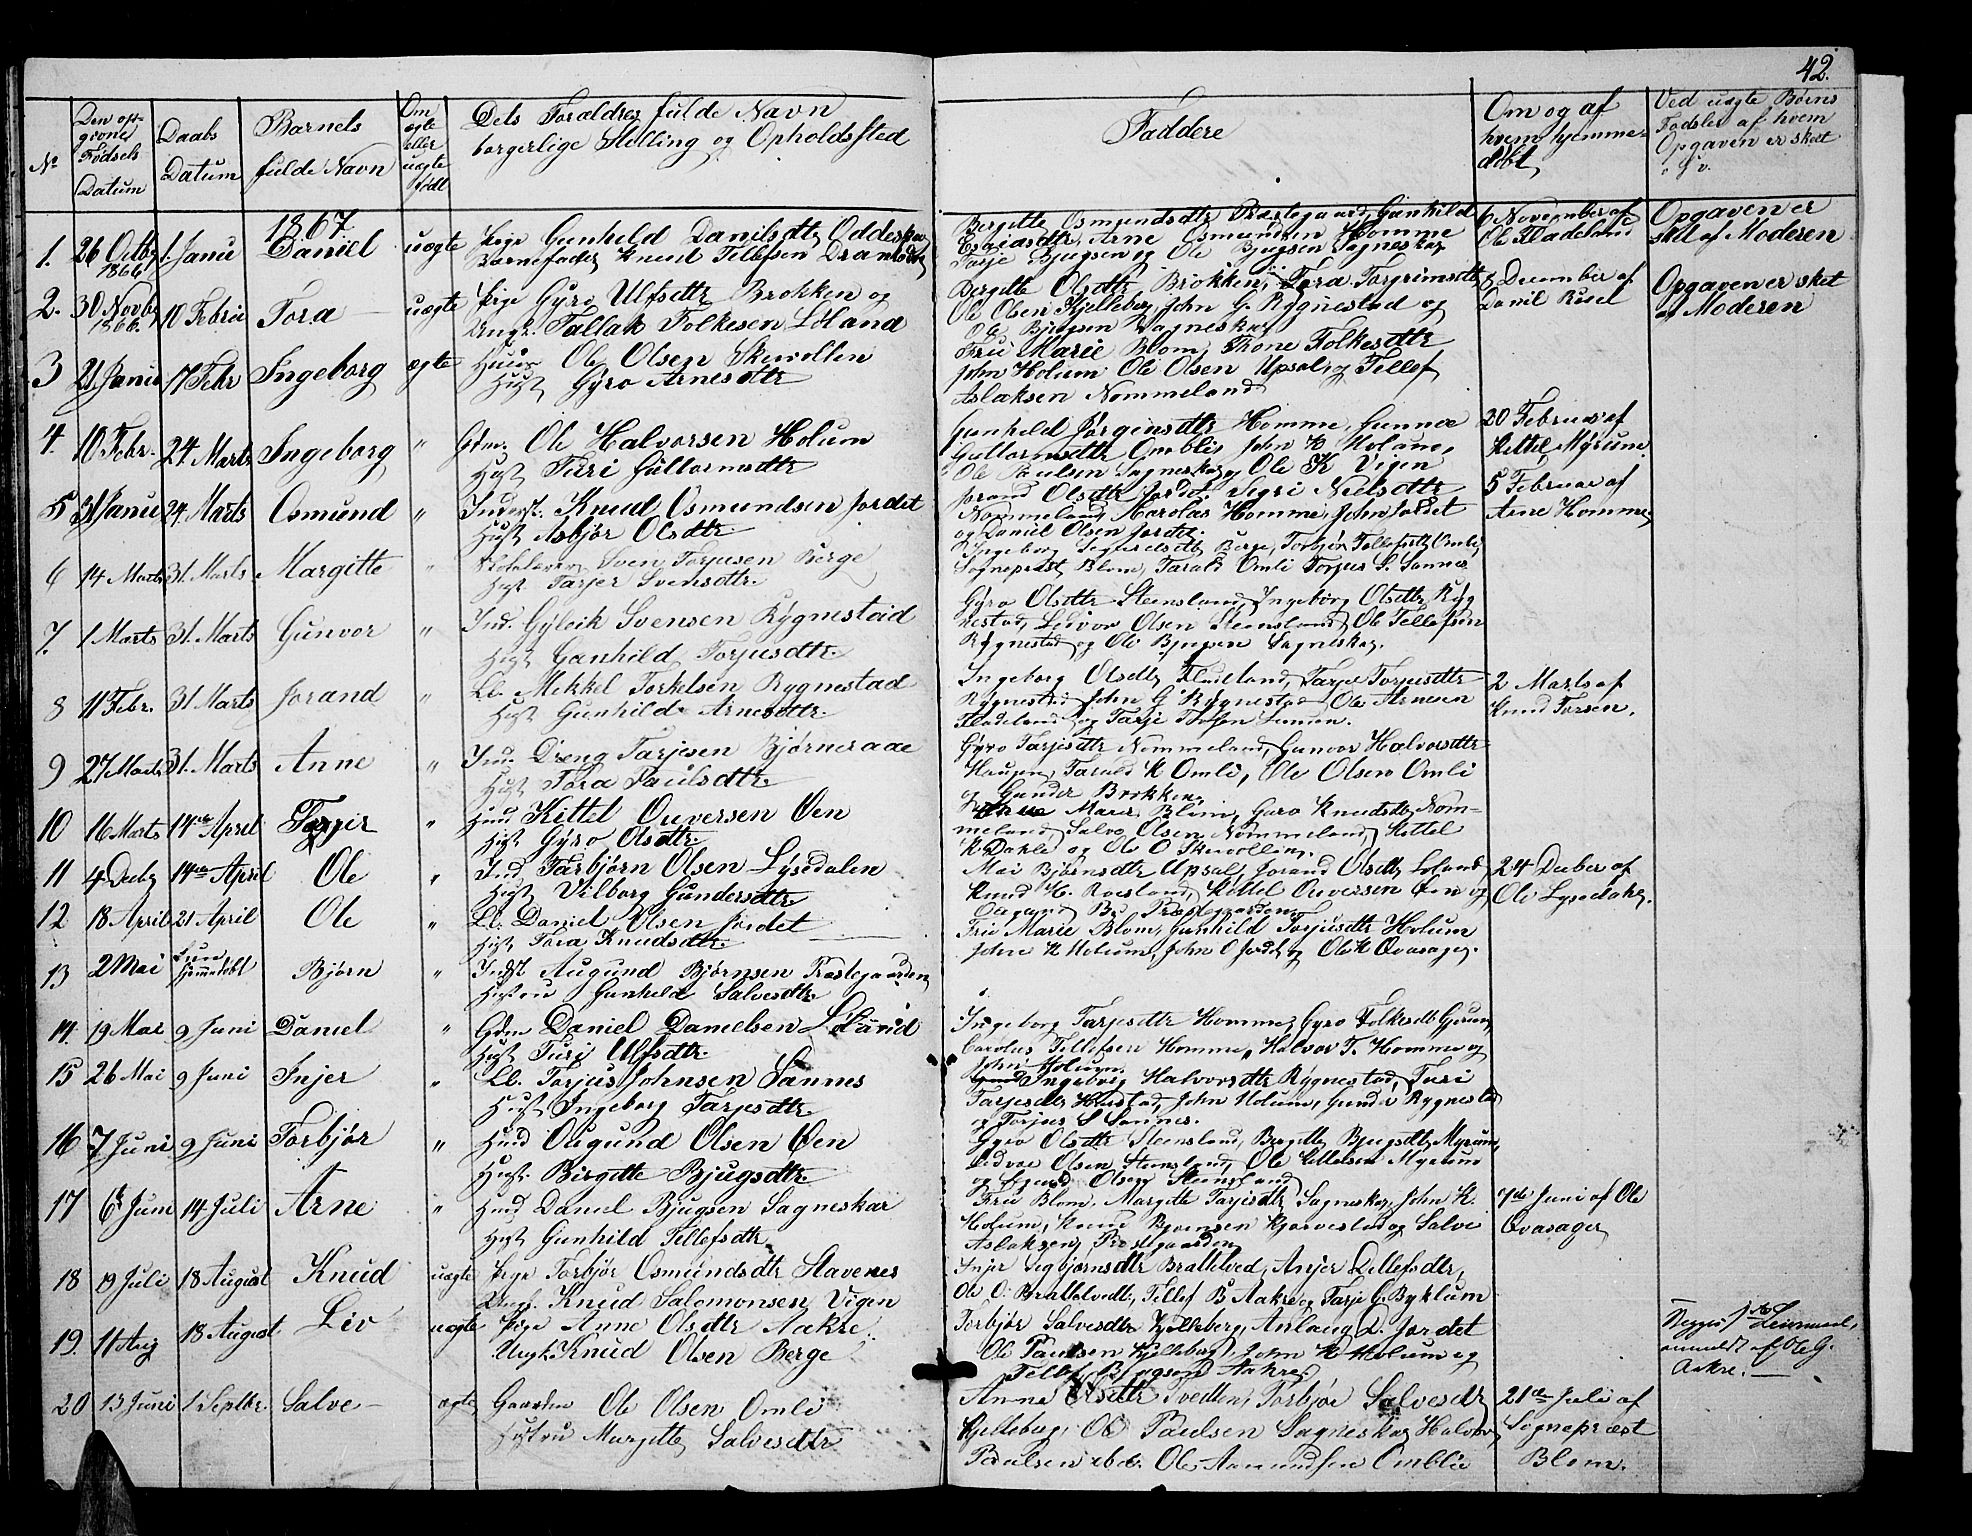 42.
No
Den op-
givne
Fødsels
Datum
Daabs
Datum
Barnets
fulde Navn
Om
ægte
eller
uægte
født
Dets Forældres fulde Navn
borgerlige Stilling og Opholdssted
Faddere
Om og af
hvem hjemme-
døbt
Ved uægte Børns
Fødsler af hvem
Opgaven er skeet
1867
1. 26 Octbr 1866 1. Janu Daniel uægte Pige Gunhild Danilsdtr
Barnefader Knud Tellefsen
Bergitte Osmundsdtr Præstegaard, Gunhild
Esaiasdtr, Arne Osmundsen Homme
Tarje Bjugsen og Ole Bjugsen Sagneskar
6 November af
Ole Fladeland
Opgaven er
skeet af Moderen
2. 30 Novbr 1866 10 Februa Tora uægte Pige Gyro Ulfsdtr Brokken og
Ungk. Tallak Folkesen Løland
Bergitte Olsdtr Brokken, Tora Torgrimsdtr
Ole Olsen Kjelleberg, John G. Rygnestad og
Ole Bjugsen Sagneskar
8 December af
Daniel
Opgaven er skeet
af Moderen
3 21 Janu 17 Febr Ingeborg ægte Huus Ole Olsen Skrevollen
Hust Gyro Arnesdtr
Fru Marie Blom, Thone Folkesdtr
John Holum Ole Olsen Upsal og Tellef
Aslaksen Nommeland
4. 10 Febr. 24 Marts Ingeborg " Gdm. Ole Halvorsen Holum
Hust Turi Guttormsdtr
Gunhild Jørgensdtr Homme, Gunnor
Guttormsdtr Omblie John K Holum,
Ole Paulsen Sagneskar og Ole K Vigen
20 Februar af
Kittel Myrum
5 31 Janu 24 Marts Osmund " Inderst. Knud Osmundsen Jordet
Hust Asbjør Olsdtr
Jorand Olsdtr Jordet, Sigri Nielsdtr
Nommeland, Karolus Homme, John Jordet
og Daniel Olsen Jordet
5 Februar af
Arne Homme
6 14 Marts 31 Marts Margitte " Sven Torjusen Berge
Hust Tarjer Svensdtr
Ingeborg Sigurdsdtr Berge, Torbjør Tellefsdtr Omli
Sognepræst Blom, Tarald Omli Torjus S. Sannes
7. 1 Marts 31. Marts Gunvor " Ind. Gyleik Svensen Rygnestad
Hust Gunhild Torjusdtr.
Gyro Olsdtr Steensland, Ingeborg Olsdtr Ryg
nestad, Leidvor Olsen Steensland, Ole Tellefsen
Rygnestad og Ole Bjugsen Sagneskar.
8 11 Febr. 31 Marts Jorand " Lb. Mikkel Torkelsen Rygnestad
Hust Gunhild Arnesdtr.
Ingeborg Olsdtr Fladeland, Tarjer Torjusdtr
Rygnestad John G Rygnestad Ole Arnesen
Fladeland og Tarje
2 Marts af
Knud Torsen.
9 27 Marts 31. Marts Anne " Ind. Dreng Tarjesen Bjørneraae
Hust Tora Paulsdtr
Gyro Tarjesdtr Nommeland, Gunvor Halvorsdtr
Haugen, Tarald K Omli, Ole Olsen Omli
og Gunder Brokken.
10 16 Marts 14de April Tarjer " Huus Kittel Ouversen Øen
Hust Gyro Olsdtr
Marie Blom, Gyro Knudsdtr Nom-
meland, Salve Olsen Nommeland, Kittel
K Dahle og Ole O Skrevollen.
11 4 Decbr 14de April Ole " Ind Torbjørn Olsen Lysedalen
Hust Vilborg Gundersdtr
Mari Bjørnsdtr Upsal, Jorand Olsdtr Løland
Knud H. Roesland, Kittel Ouversen Øen og
24 Decbr af
Ole Lysedalen.
12 18 April 21 April Ole " Lb. Daniel Olsen Jordet
Hust Tora Knudsdtr.
Fru Marie Blom, Gunhild Torjusdtr Holum
John K Holum, John O Jordet og Ole K Qvasager.
13 2 Mai hjemmedøbt Bjørn " Indst Augund Bjørnsen Præstegaarden
Hustru Gunhild Salvesdtr
14. 19 Mai 9 Juni Daniel " Gdm Daniel Danielsen
Hust Turi Ulfsdtr.
Ingeborg Tarjesdtr Homme, Gyro Folkesdtr
Carolus Tellefsen Homme, Halvor T. Homme og
John Holum.
15 26 Mai 9 Juni Injer " Lb. Torjus Johnsen Sannes
Hust Ingeborg Tarjesdtr.
Ingeborg Halvorsdtr Rygnestad, Turi
Tarjesdtr Harstad, John Holum, Gunder Rygnestad
og Torjus S Sannes.
16 7 Juni 9 Juni Torbjør " Huus Ougund Olsen Øen
Hust. Birgitte Bjugsdtr.
Gyro Olsdtr Steensland, Bergitte Bjugsdtr Myrum,
Leidvor Olsen Steensland, Ole Kittelsen Myrum
og Olsen Steensland
17 6te Juni 14 Juli Arne " Huus Daniel Bjugsen Sagneskar
Hust Gunhild Tellefsdtr
Fru Blom, Margitte Tarjesdtr Sagneskar, John K.
Holum, Knud Bjørnsen Kjørvestad og Salve
Aslaksen, Præstegaarden
7de Juni af Ole
Qvasager
18 19 Juli 18 August Knud uægte Pige Torbjør Osmundsdtr Stavenes
Ungk. Knud Salomonsen Vigen
Injer Sigbjørnsdtr Brattelved, Anjer Tellefsdtr,
Ole O. Brattelvedt, Tellef B Aakre og Tarje G. Byklum
19. 11 Aug 18 August Liv uægte Pige Anne Olsdtr Aakre
Ungk. Knud Olsen Berge
Torbjør Salvesdtr Kjelleberg, Anlaug D. Jordet
Ole Paulsen Kjelleberg, John K Holum og
Tellef Bjugsen Aakre
Begges 1ste Leiermaal,
anmeldt af Ole G.
Aakre.
20 13 Juni 1 Septbr. Salve ægte Gaardm Ole Olsen Omli
Hustru Margitte Salvesdtr
Anne Olsdtr Tvedten, Torbjør Salvesdtr
Kjelleberg, Ole Paulsen Sagneskar, Halvor
Paulsen ibd. Ole Aamundsen Omblie
21de Juli af
Sognepræst
Blom.